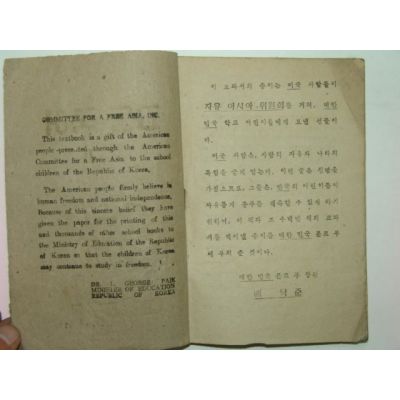 COMMITTEE FOR A FREE ASIA, INC.
This textbook is a gift of the American
people presented through the American
Committee for a Free Asia to the school
children of the Republic of Korea.
The American people firmly believe in
human freedom and national independence.
Because of this sincere belief they have
given the paper for the printing of this
and thousands of other school books to
the Ministry of Education of the Republic
of Korea so that the children of Korea
may continue to study in freedom.
DR. L. GEORGE PAIK
MINISTER OF EDUCATION
REPUBLIC OF KOREA
이 교과서의 종이는 미국 사람들이
자유 아시아 위원회를 거쳐, 대한
민국 학교 어린이들에게 보낸 선물이
다.
미국 사람은, 사람의 자유와 나라의
독립을 굳게 믿는다. 이런 굳은 신념을
가짐으로써, 그들은, 한국의 어린이들이
자유롭게 공부를 계속할 수 있게 하기
위하여, 이 책과 또 수백만 책의 교과
서를 박이낼 종이를 대한 민국 문교 부
에 부쳐 준 것이다.
대한 민국 문교 부 장관
백 낙 준